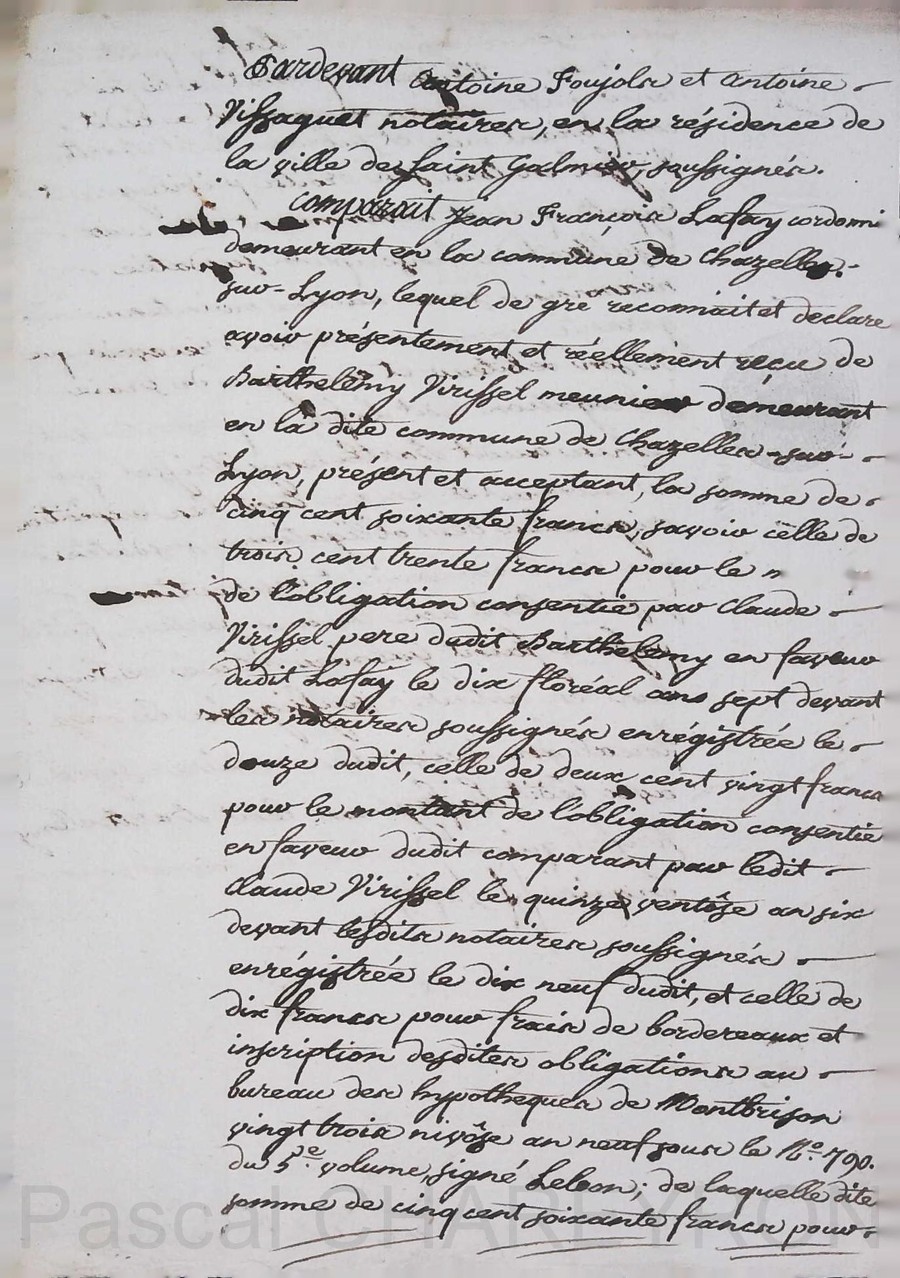 Pardevant Antoine Foujols et Antoine
Vissaguet notaires, en la résidence de
la ville de Saint Galmier, soussignés.
Comparait Jean François Lafay cordonni
demeurant en la commune de Chazelles-
sur-Lyon, lequel de gré reconnait et declare
avoir présentement et réellement reçu de
Barthelemy Virissel meunier demeurant
en la dite commune de Chazelles-sur-
Lyon, présent et acceptant, la somme de
cinq cent soixante francs, savoir celle de
trois cent trente francs pour le
de l'obligation consentie par Claude
Virissel pere dudit Barthelemy en faveur
dudit Lafay le dix floréal ans sept devant
les notaires soussignés enrégistrée le
douze dudit, celle de deux cent vingt francs
pour le montant de l'obligation consentie
en faveur dudit comparant par ledit
Claude Virissel le quinze ventôse an six
devant lesdits notaires soussignés
enrégistrée le dix neuf dudit, et celle de
dix francs pour frais de bordereaux et
inscription desdites obligations au
bureau des hypotheques de Montbrison
vingt trois nivôse an neuf sous le N.o 790.
du 5.me volume, signé Lebon; de laquelle dite
somme de cinq cent soixante francs pour
Pascal CHAREYRON